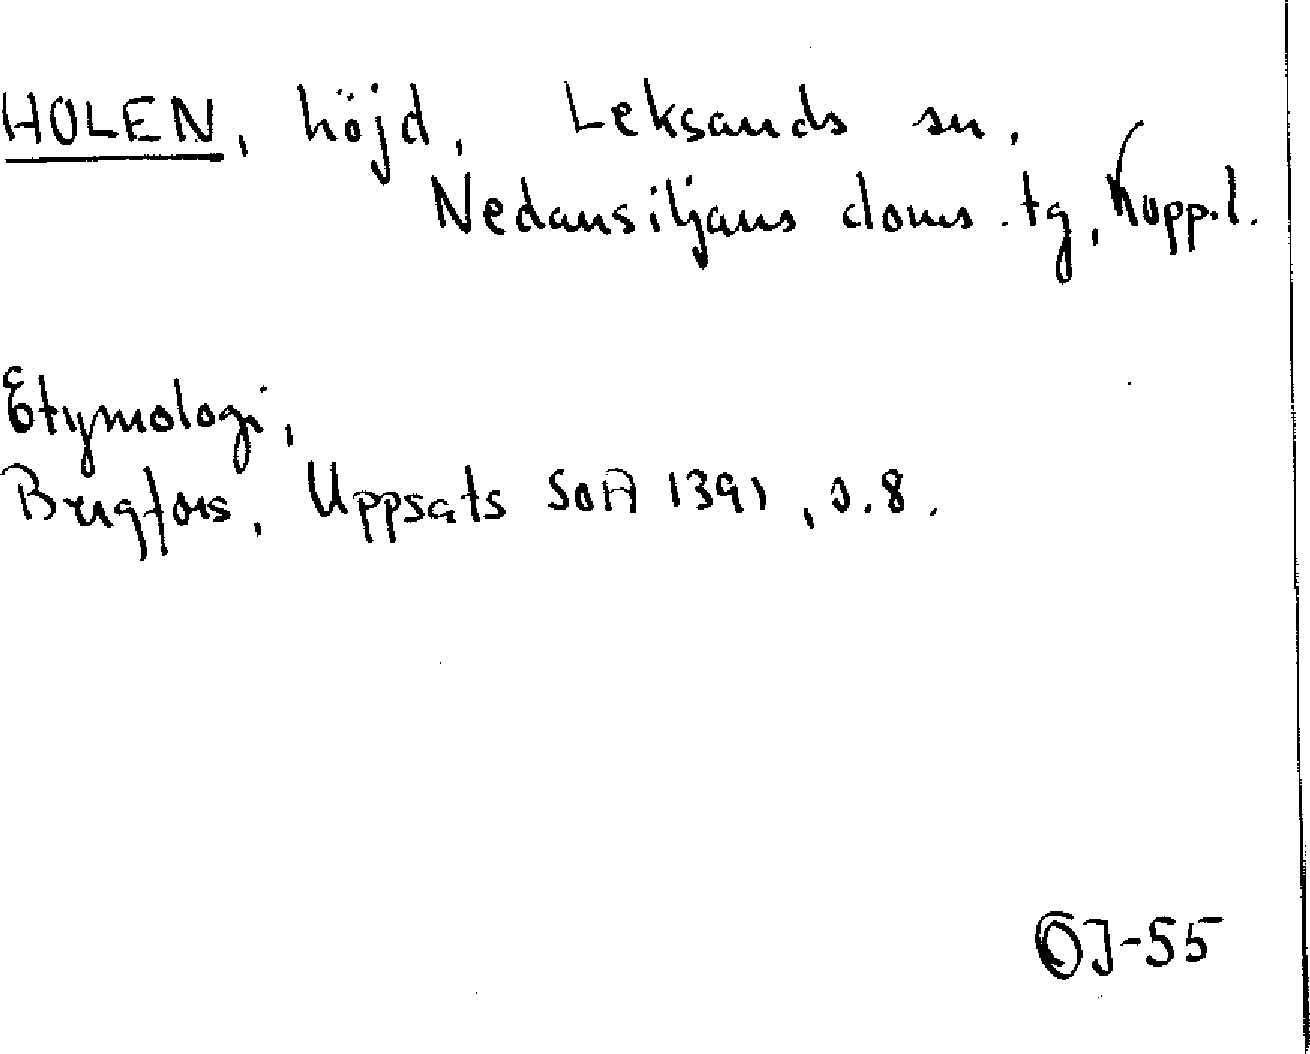 HOLEN, höjd, Leksands sn,
Nedansiljans doms.tg, Kopp.l.
Etymologi,
Uppsats SOA 1391, s.8.
OJ-55